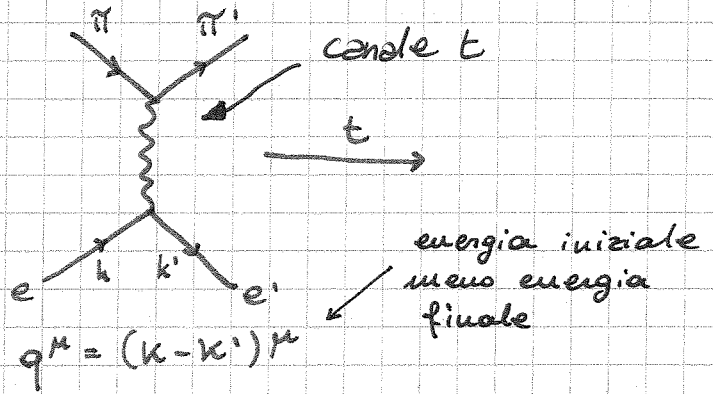 π π'
canale t
t
k k'
e e'
energia iniziale
meno energia
finale
q^μ = (k-k')^μ